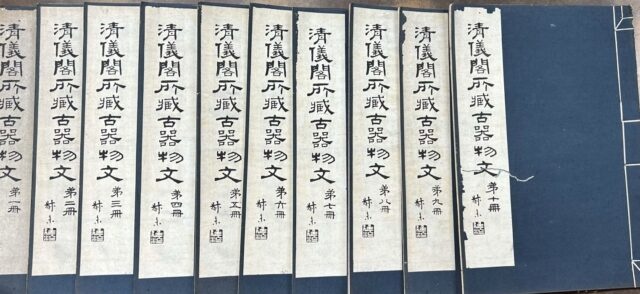 清儀閣所藏古器物文 第一冊
清儀閣所藏古器物文 第二冊
清儀閣所藏古器物文 第三冊
清儀閣所藏古器物文 第四冊
清儀閣所藏古器物文 第五冊
清儀閣所藏古器物文 第六冊
清儀閣所藏古器物文 第七冊
清儀閣所藏古器物文 第八冊
清儀閣所藏古器物文 第九冊
清儀閣所藏古器物文 第十冊